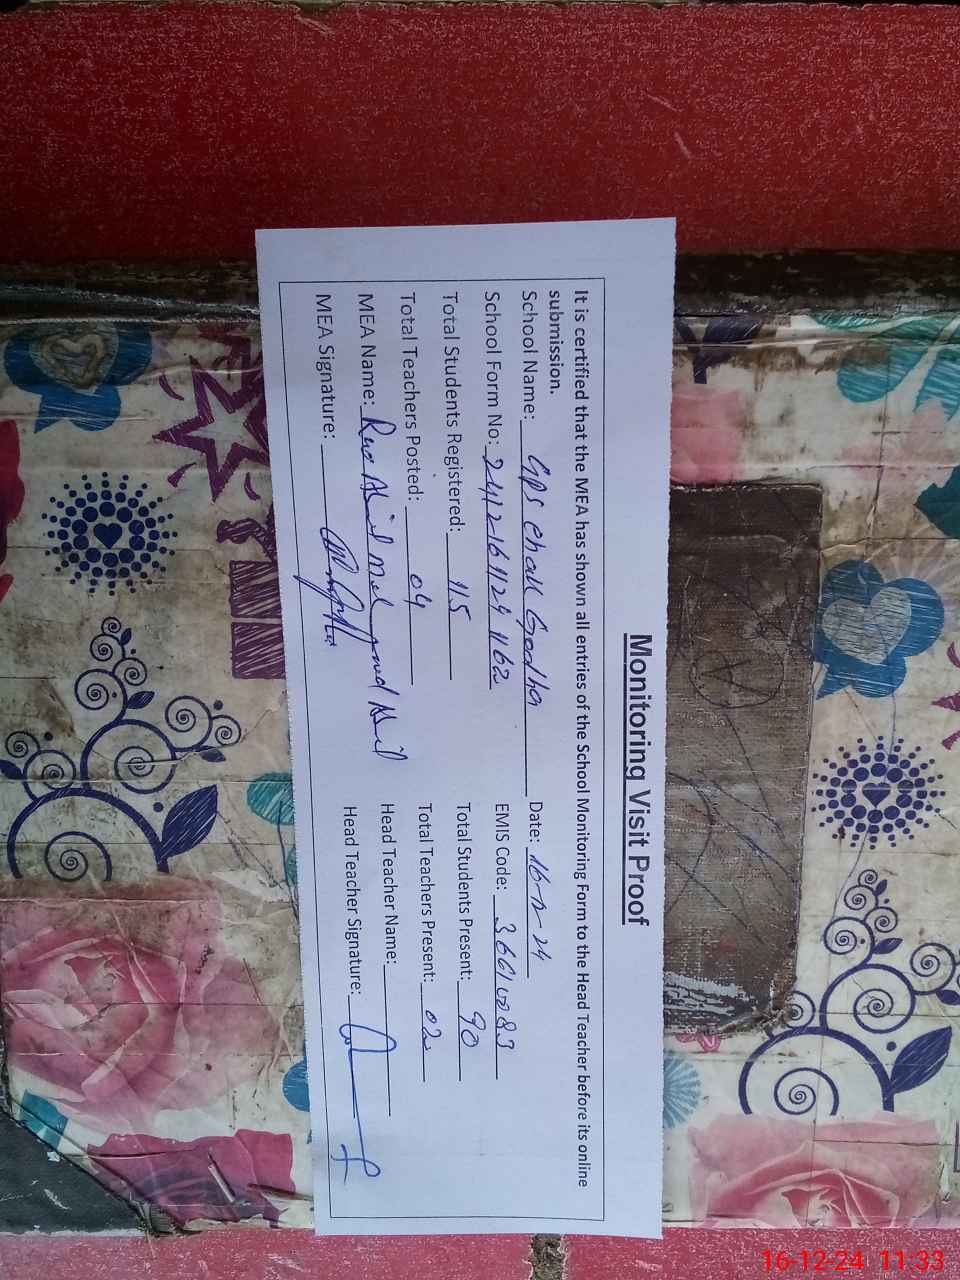 Monitoring Visit Proof
It is certified that the MEA has shown all entries of the School Monitoring Form to the Head Teacher before its online
submission.
School Name: GPS Chak Godha Date: 16-12-24
School Form No: EMIS Code: 36610083
Total Students Registered: 115 Total Students Present: 90
Total Teachers Posted: 04 Total Teachers Present: 02
MEA Name: Head Teacher Name:
MEA Signature: Head Teacher Signature:
16-12-24 11:33